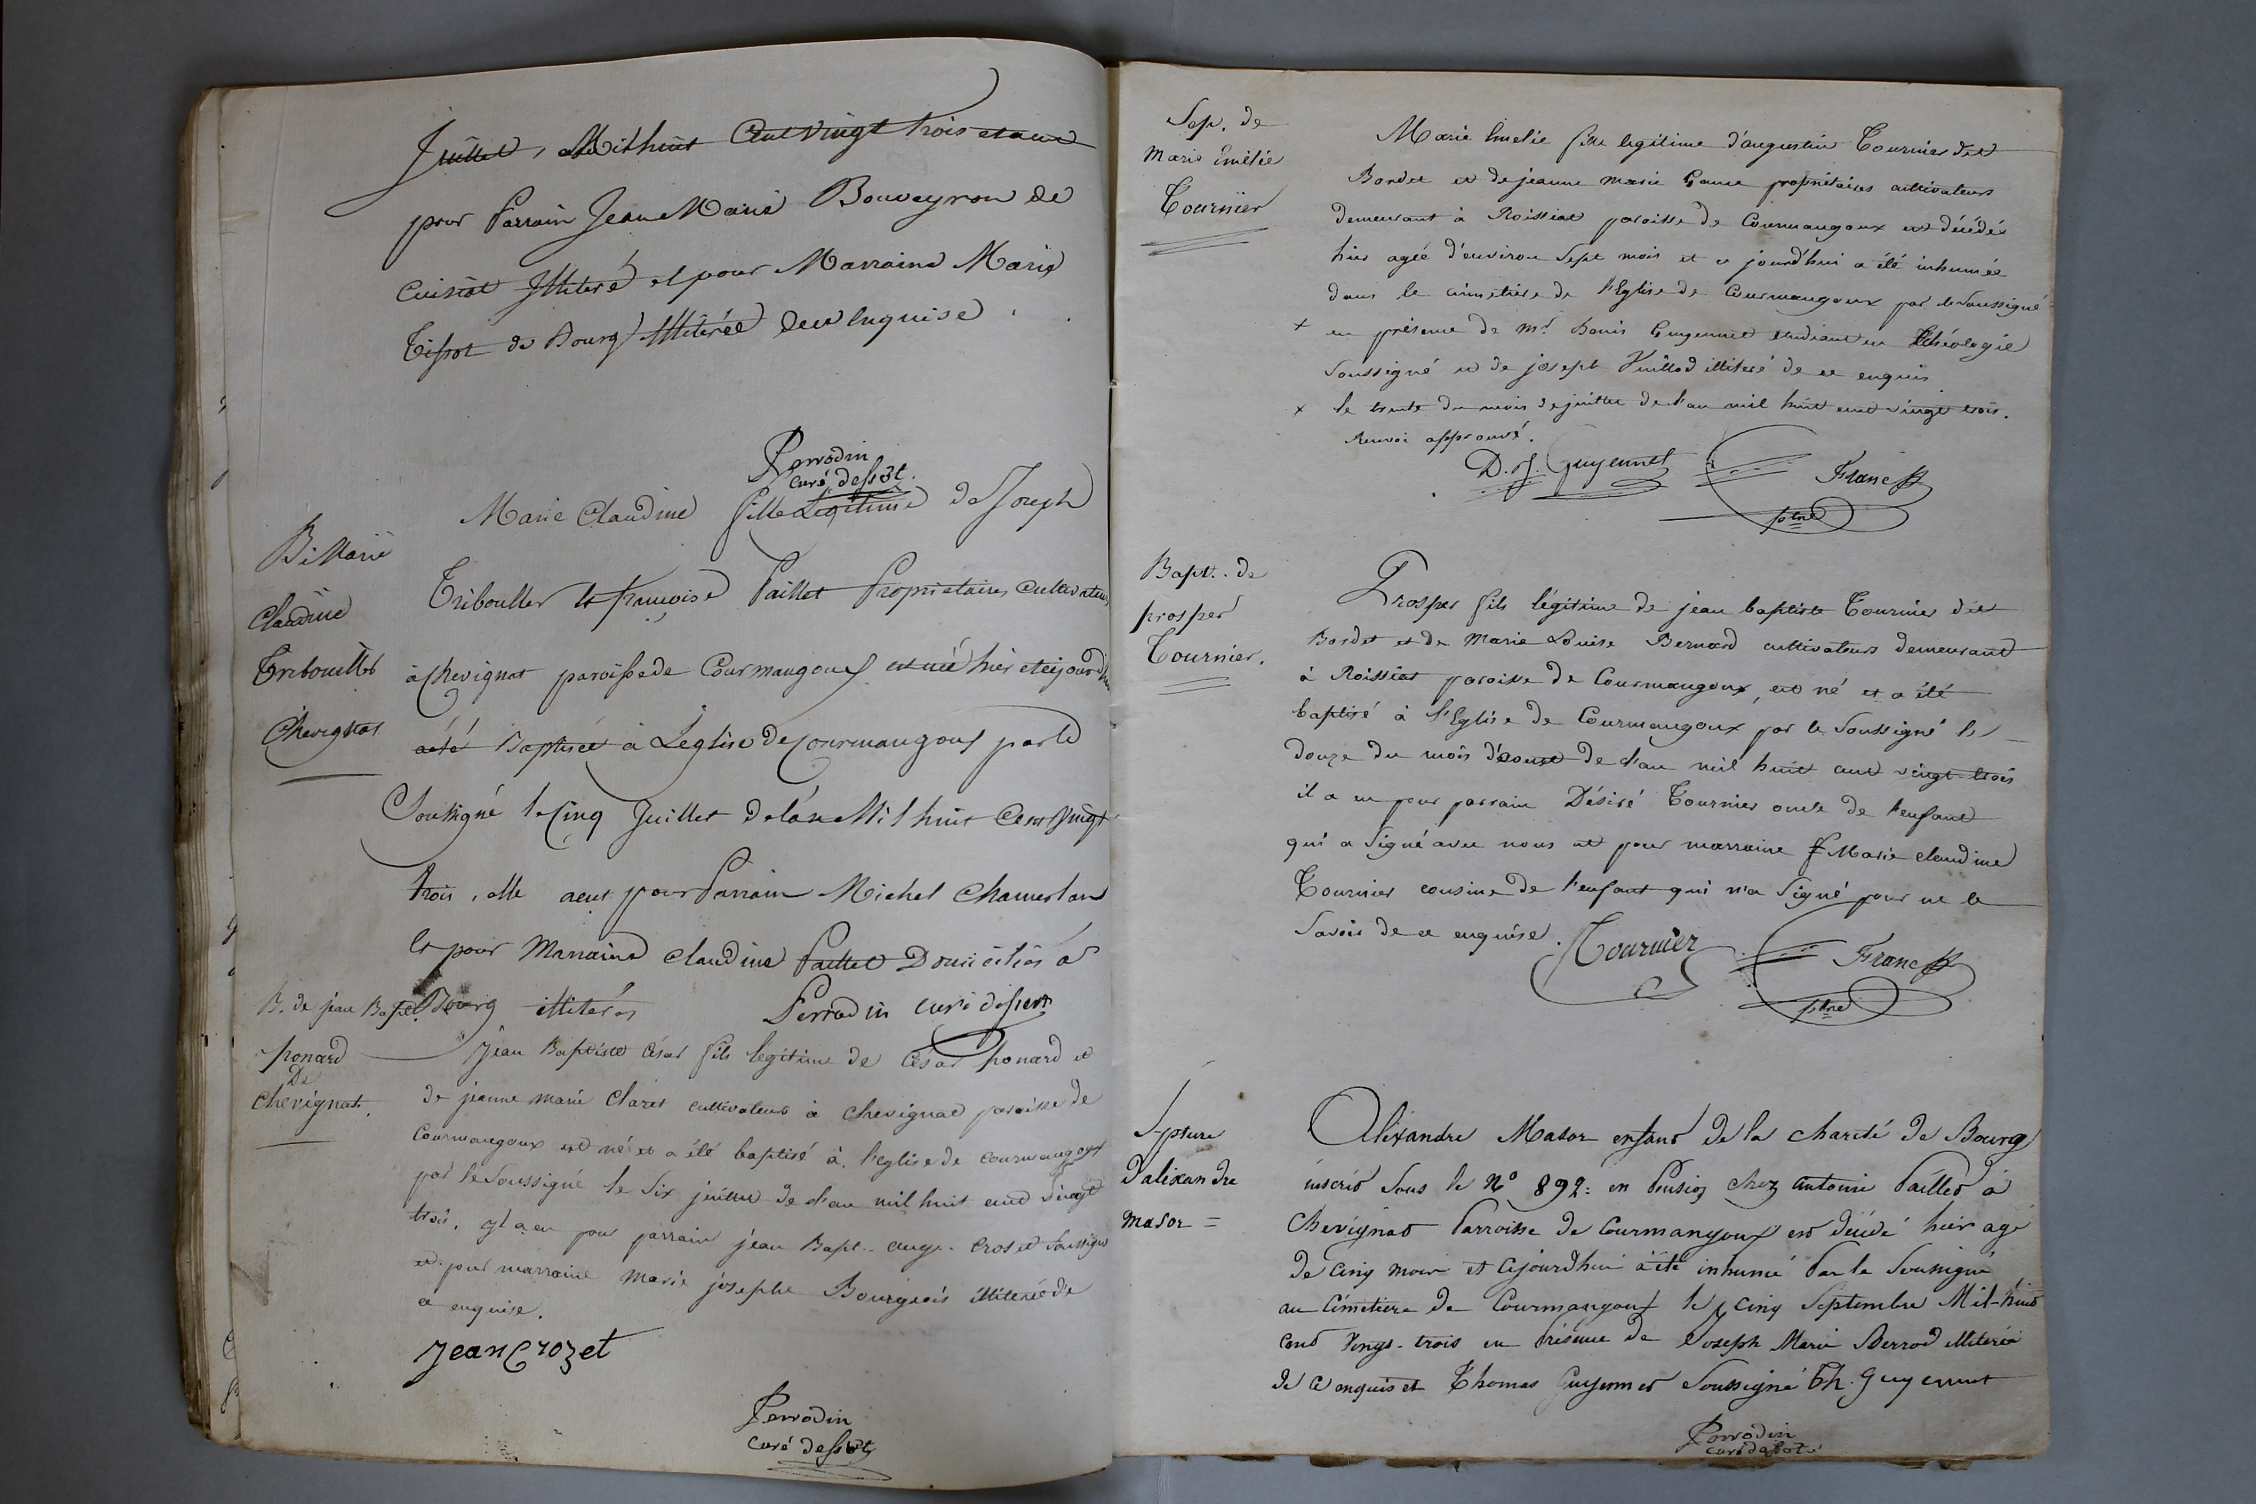 Juillet, Mil huit Cent vingt trois et a eu
pour Parrain Jean Marie Bouveyron de
Cuisiat Illiteré et pour Marraine Marie
Tissot de Bourg Illiterée de ce Enquise.
Perrodin
curé dessvt.
B. Marie
Claudine
Tribouillet
Chevignat
Marie Claudine fille Legitime de Joseph
Tribouller et françoise Paillet Propriétaires Cultivateurs
à chevignat paroisse de Courmangoux est née hier et cejourd'hui
a été Baptisée à L'eglise de Courmangoux par le
Soussigné le Cinq Juillet de l'an Mil huit Cent Vingt
trois, elle a eut pour Parrain Michel Chamerlan
et pour Marraine Claudine Paillet Domiciliés à
Bourg illiterés Perrodin curé dessert
B. de jean Bapt.
ponard
De
chevignat.
Jean Baptiste César fils legitime de César ponard et
de jeanne marie Claret cultivateurs à chevignat paroisse de
Courmangoux est né et a été baptisé à l'eglise de courmangoux
par le Soussigné le Six juillet de l'an mil huit cent vingt
trois. yl a eu pour parrain jean Bapt. Croset Soussigné
et pour marraine marie josephe Bourgeois illiterée de
ce enquise.
Jean Crozet
Perrodin
curé dessvt
Sep. de
marie Emélie
Tournier
Marie Emelie fille legitime d'augustin Tournier dit
Bordet et de jeanne marie propriétaires cultivateurs
demeurant à Roissiat paroisse de Courmangoux est décédée
hier agée d'environ Sept mois et ce jourd'hui a été inhumée
dans le cimetière de l'Eglise de Courmangoux par le Soussigné
+ en présence de mr. Guyennet étudiant en théologie
Soussigné et de joseph Vuillod illiteré de ce enquis
x le trente du mois de juillet de l'an mil huit cent vingt trois.
Renvoi approuvé.
D. J. Guyennet Franc
ptre
Bapt. de
prosper
Tournier.
Prosper fils légitime de jean baptiste Tournier dit
Bordet et de Marie Louise Bernard cultivateurs demeurant
à Roissiat paroisse de Courmangoux, est né et a été
baptisé à l'Eglise de Courmangoux par le Soussigné le
douze du mois d'aoust de l'an mil huit cent vingt trois
il a eu pour parrain Désiré Tournier oncle de l'enfant
qui a Signé avec nous et pour marraine Marie claudine
Tournier cousine de l'enfant qui n'a Signé pour ne le
Savoir de ce enquise.
Tournier Franc
ptre
Spture
d'alixandre
masor =
Alixandre Masor enfant de la charité de Bourg
inscrit Sous le No 892: en Pension chez antoine Paillet à
Chevignat Parroisse de Courmangoux est décédé hier agé
de cinq mois et cejourd'hui a été inhumé Par le Soussigné
au Cimetiere de Courmangoux le cinq Septembre Mil-huit
cent Vingt-trois en présence de Joseph Marie Berrod illiteré
de ce enquis et Thomas Guyennet Soussigné Th. Guyennet
Perrodin
curé dessvt